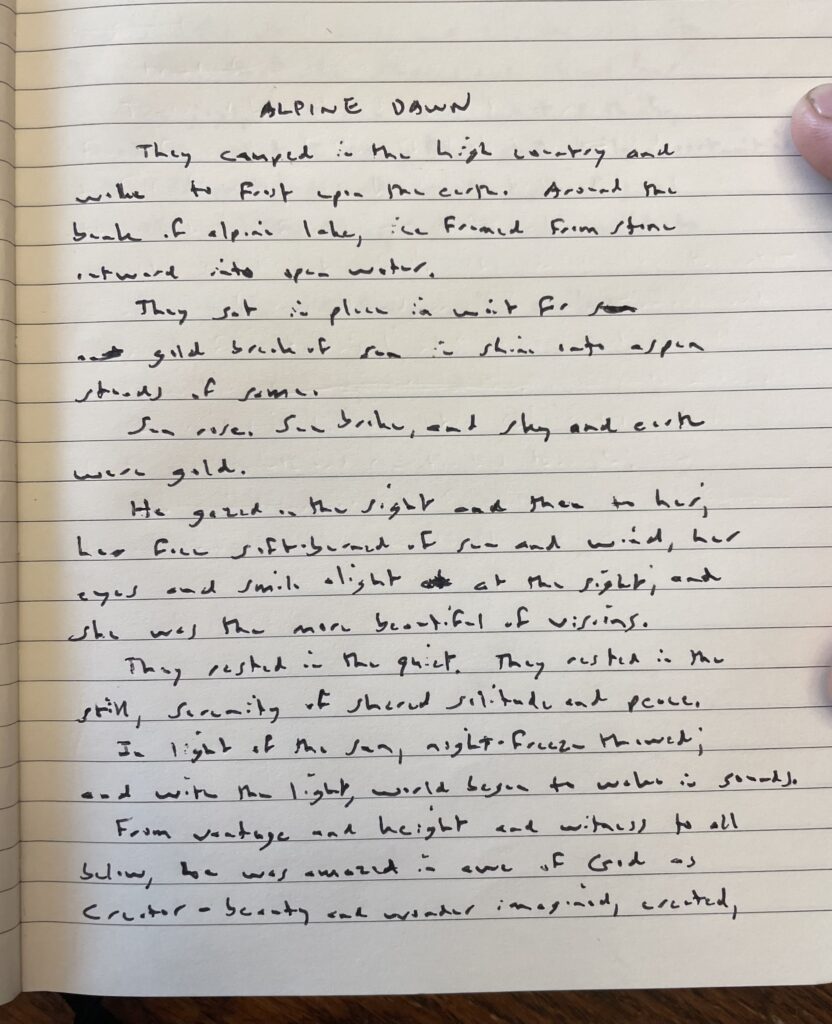 ALPINE DAWN
They camped in the high country and
woke to frost upon the earth. Around the
bank of alpine lake, ice formed from stone
outward into open water.
They sat in place in wait for
gold break of sun in shine onto aspen
stands of same.
Sun rose. Sun broke, and sky and earth
were gold.
He gazed on the sight and then to her;
her face soft-burned of sun and wind, her
eyes and smile alight at the sight; and
she was the more beautiful of visions.
They rested in the quiet. They rested in the
still, serenity of shared solitude and peace.
In light of the sun, night-freeze thawed;
and with the light, world began to wake in sounds.
From vantage and height and witness to all
below, he was amazed in awe of God as
Creator - beauty and wonder imagined, created,